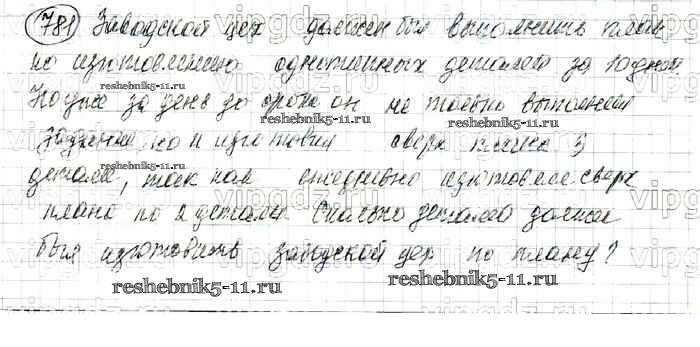 781 Заводской цех должен был выполнить план
по изготовлению однотипных деталей за 10 дней.
Но уже за день до срока он не только выполнил
задание, но и изготовил сверх плана 3
детали, так как ежедневно изготовлял сверх
плана по 2 детали. Сколько деталей должен
был изготовить заводской цех по плану?
reshebnik5-11.ru
reshebnik5-11.ru
reshebnik5-11.ru
reshebnik5-11.ru
reshebnik5-11.ru
vipgdz.ru